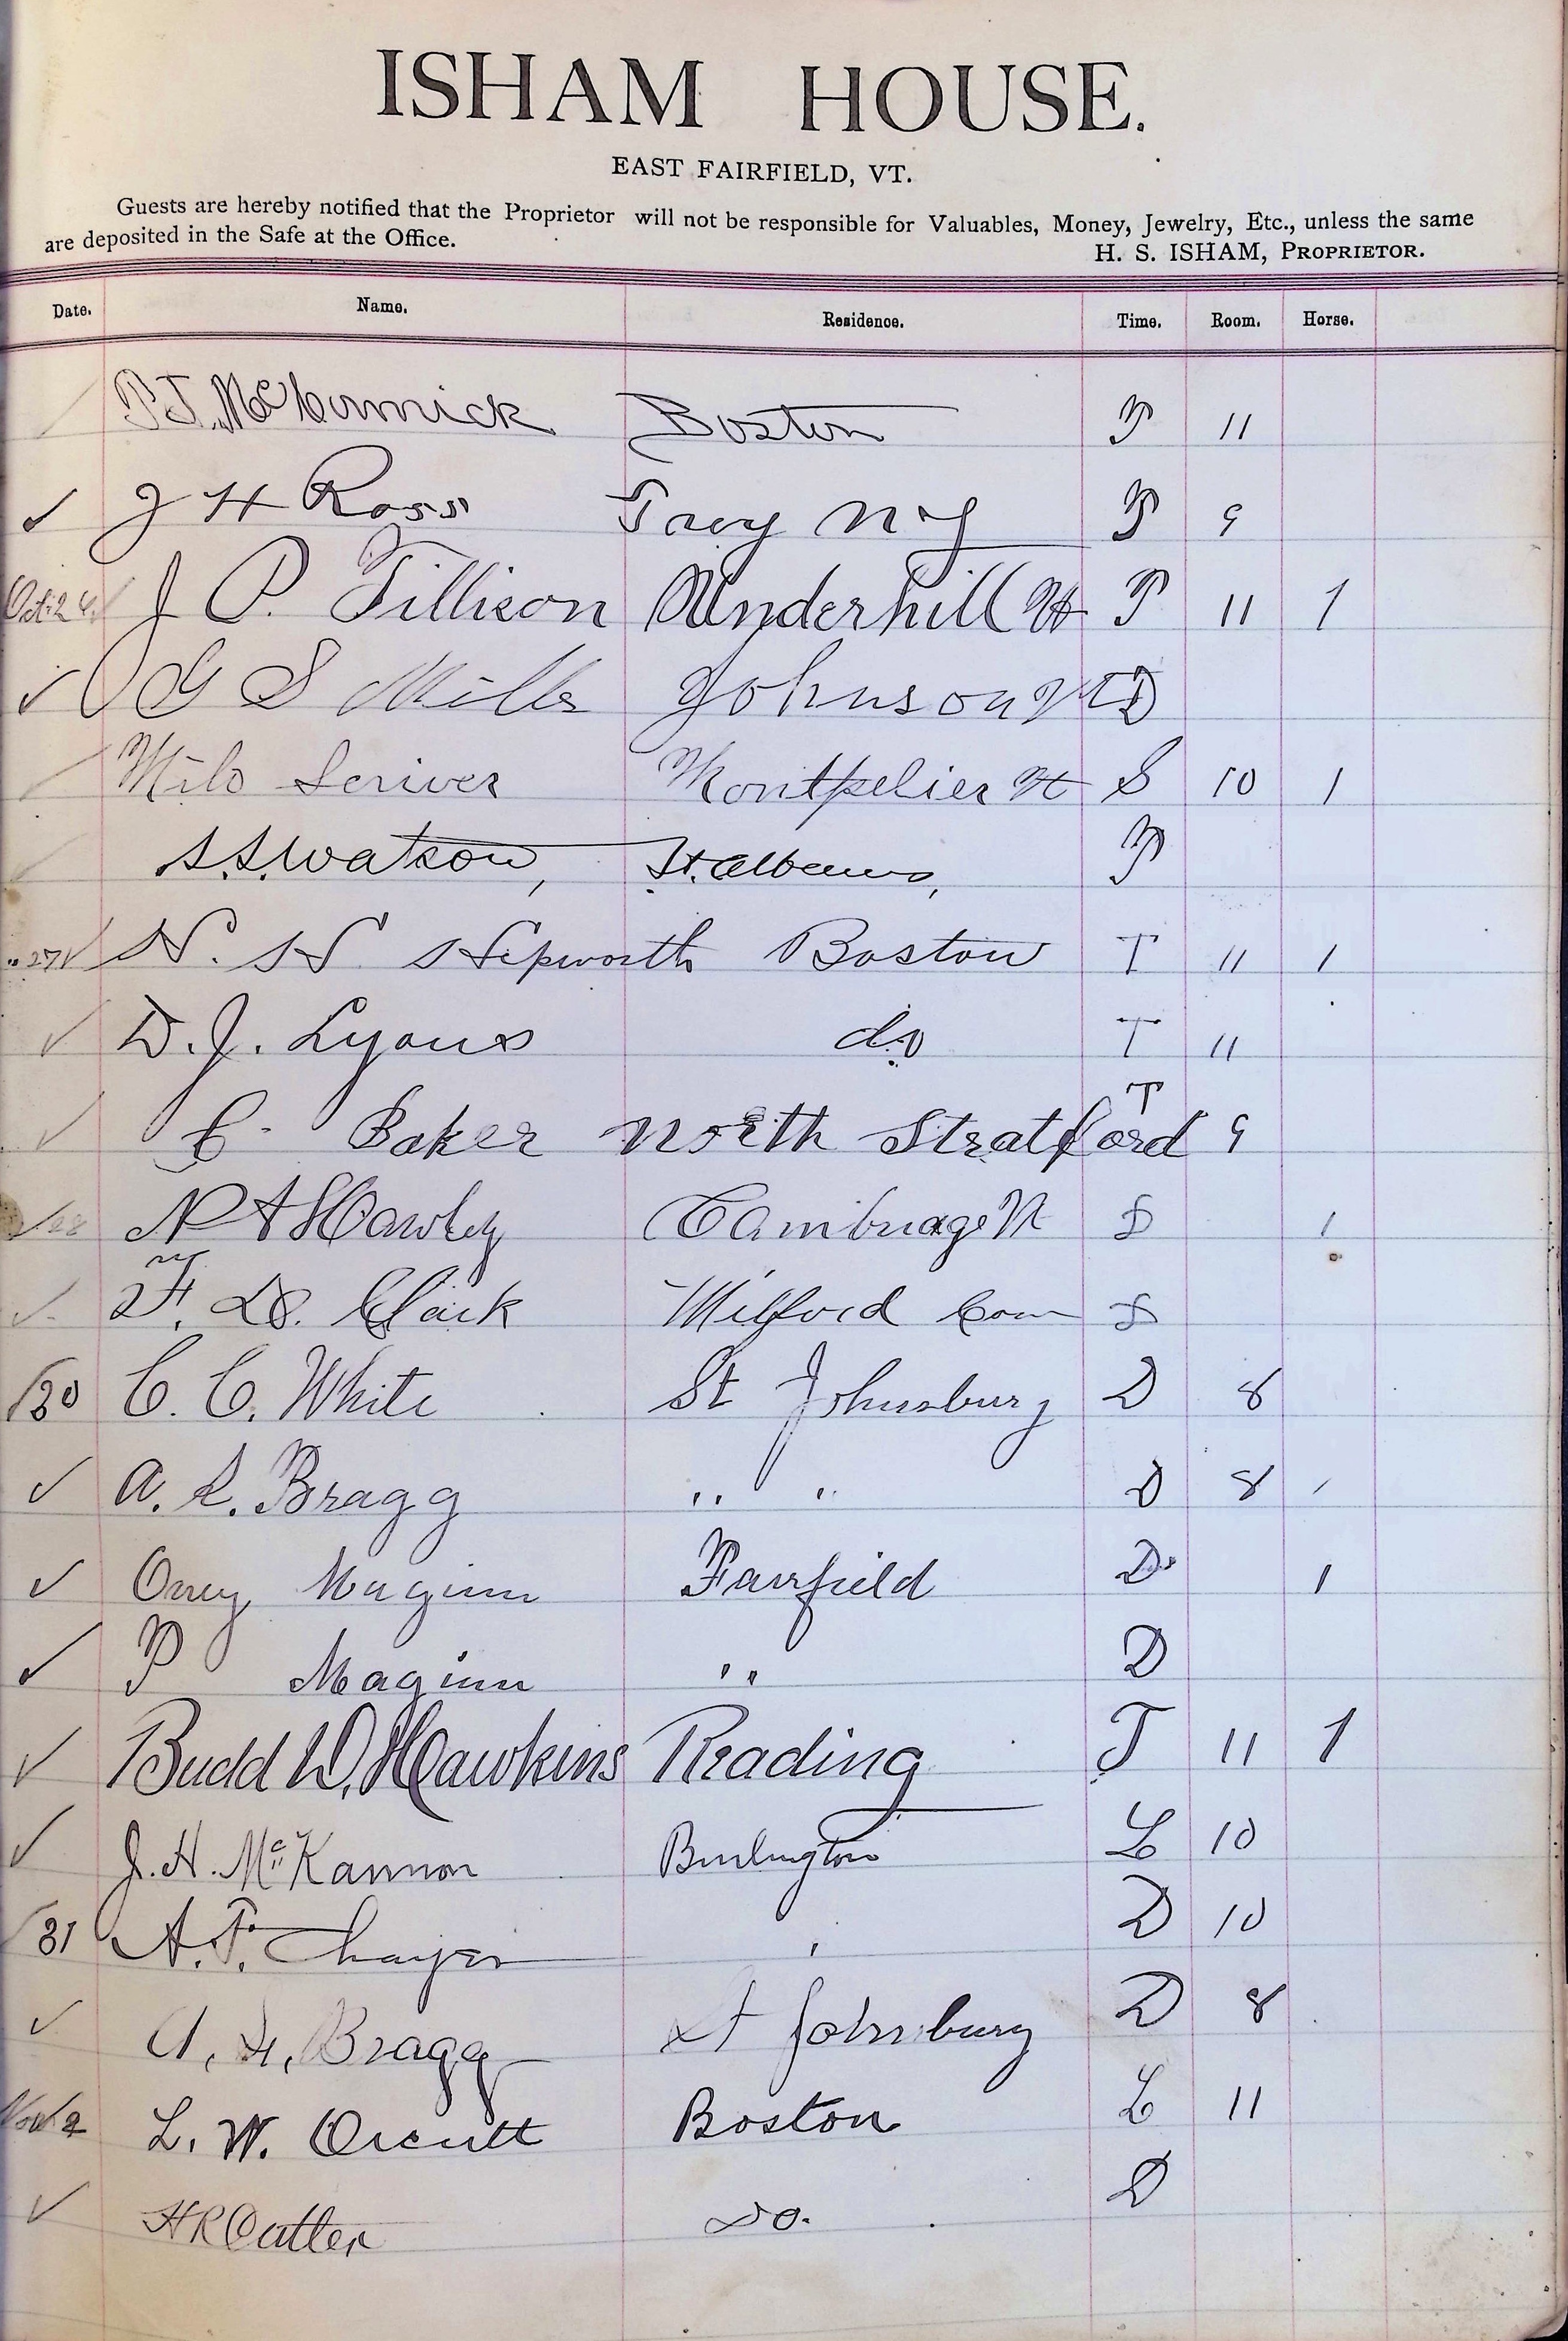 ISHAM HOUSE.
EAST FAIRFIELD, VT.
Guests are hereby notified that the Proprietor will not be responsible for Valuables, Money, Jewelry, Etc., unless the same
are deposited in the Safe at the Office.
H. S. ISHAM, PROPRIETOR.
Date. Name. Residence. Time. Room. Horse.
P.J. McCormick Boston P 11
J H Ross Troy N Y P 9
Oct. J P. Tillison Underhill Vt P 11 1
G S Mills Johnson Vt D
Milo Scriver Montpelier Vt S 10 1
S.S. Watson, St. Albans, P
" 27 N. H Hepworth Boston T 11 1
D. J. Lyons do T 11
C. Baker North Stratford T 9
28 N A Hawley Cambridge Vt D 1
F. D. Clark Milford Conn D
30 C. C. White St Johnsbury D 8
A. L. Bragg " " D 8 1
Maginn Fairfield D 1
P Maginn " D
Budd W. Hawkins Reading T 11 1
J. H. McKannon Burlington L 10
31 A. T. D 10
A. Bragg St Johnsbury D 8
Nov 2 L. W. Orcutt Boston L 11
H R Cutler Do. D